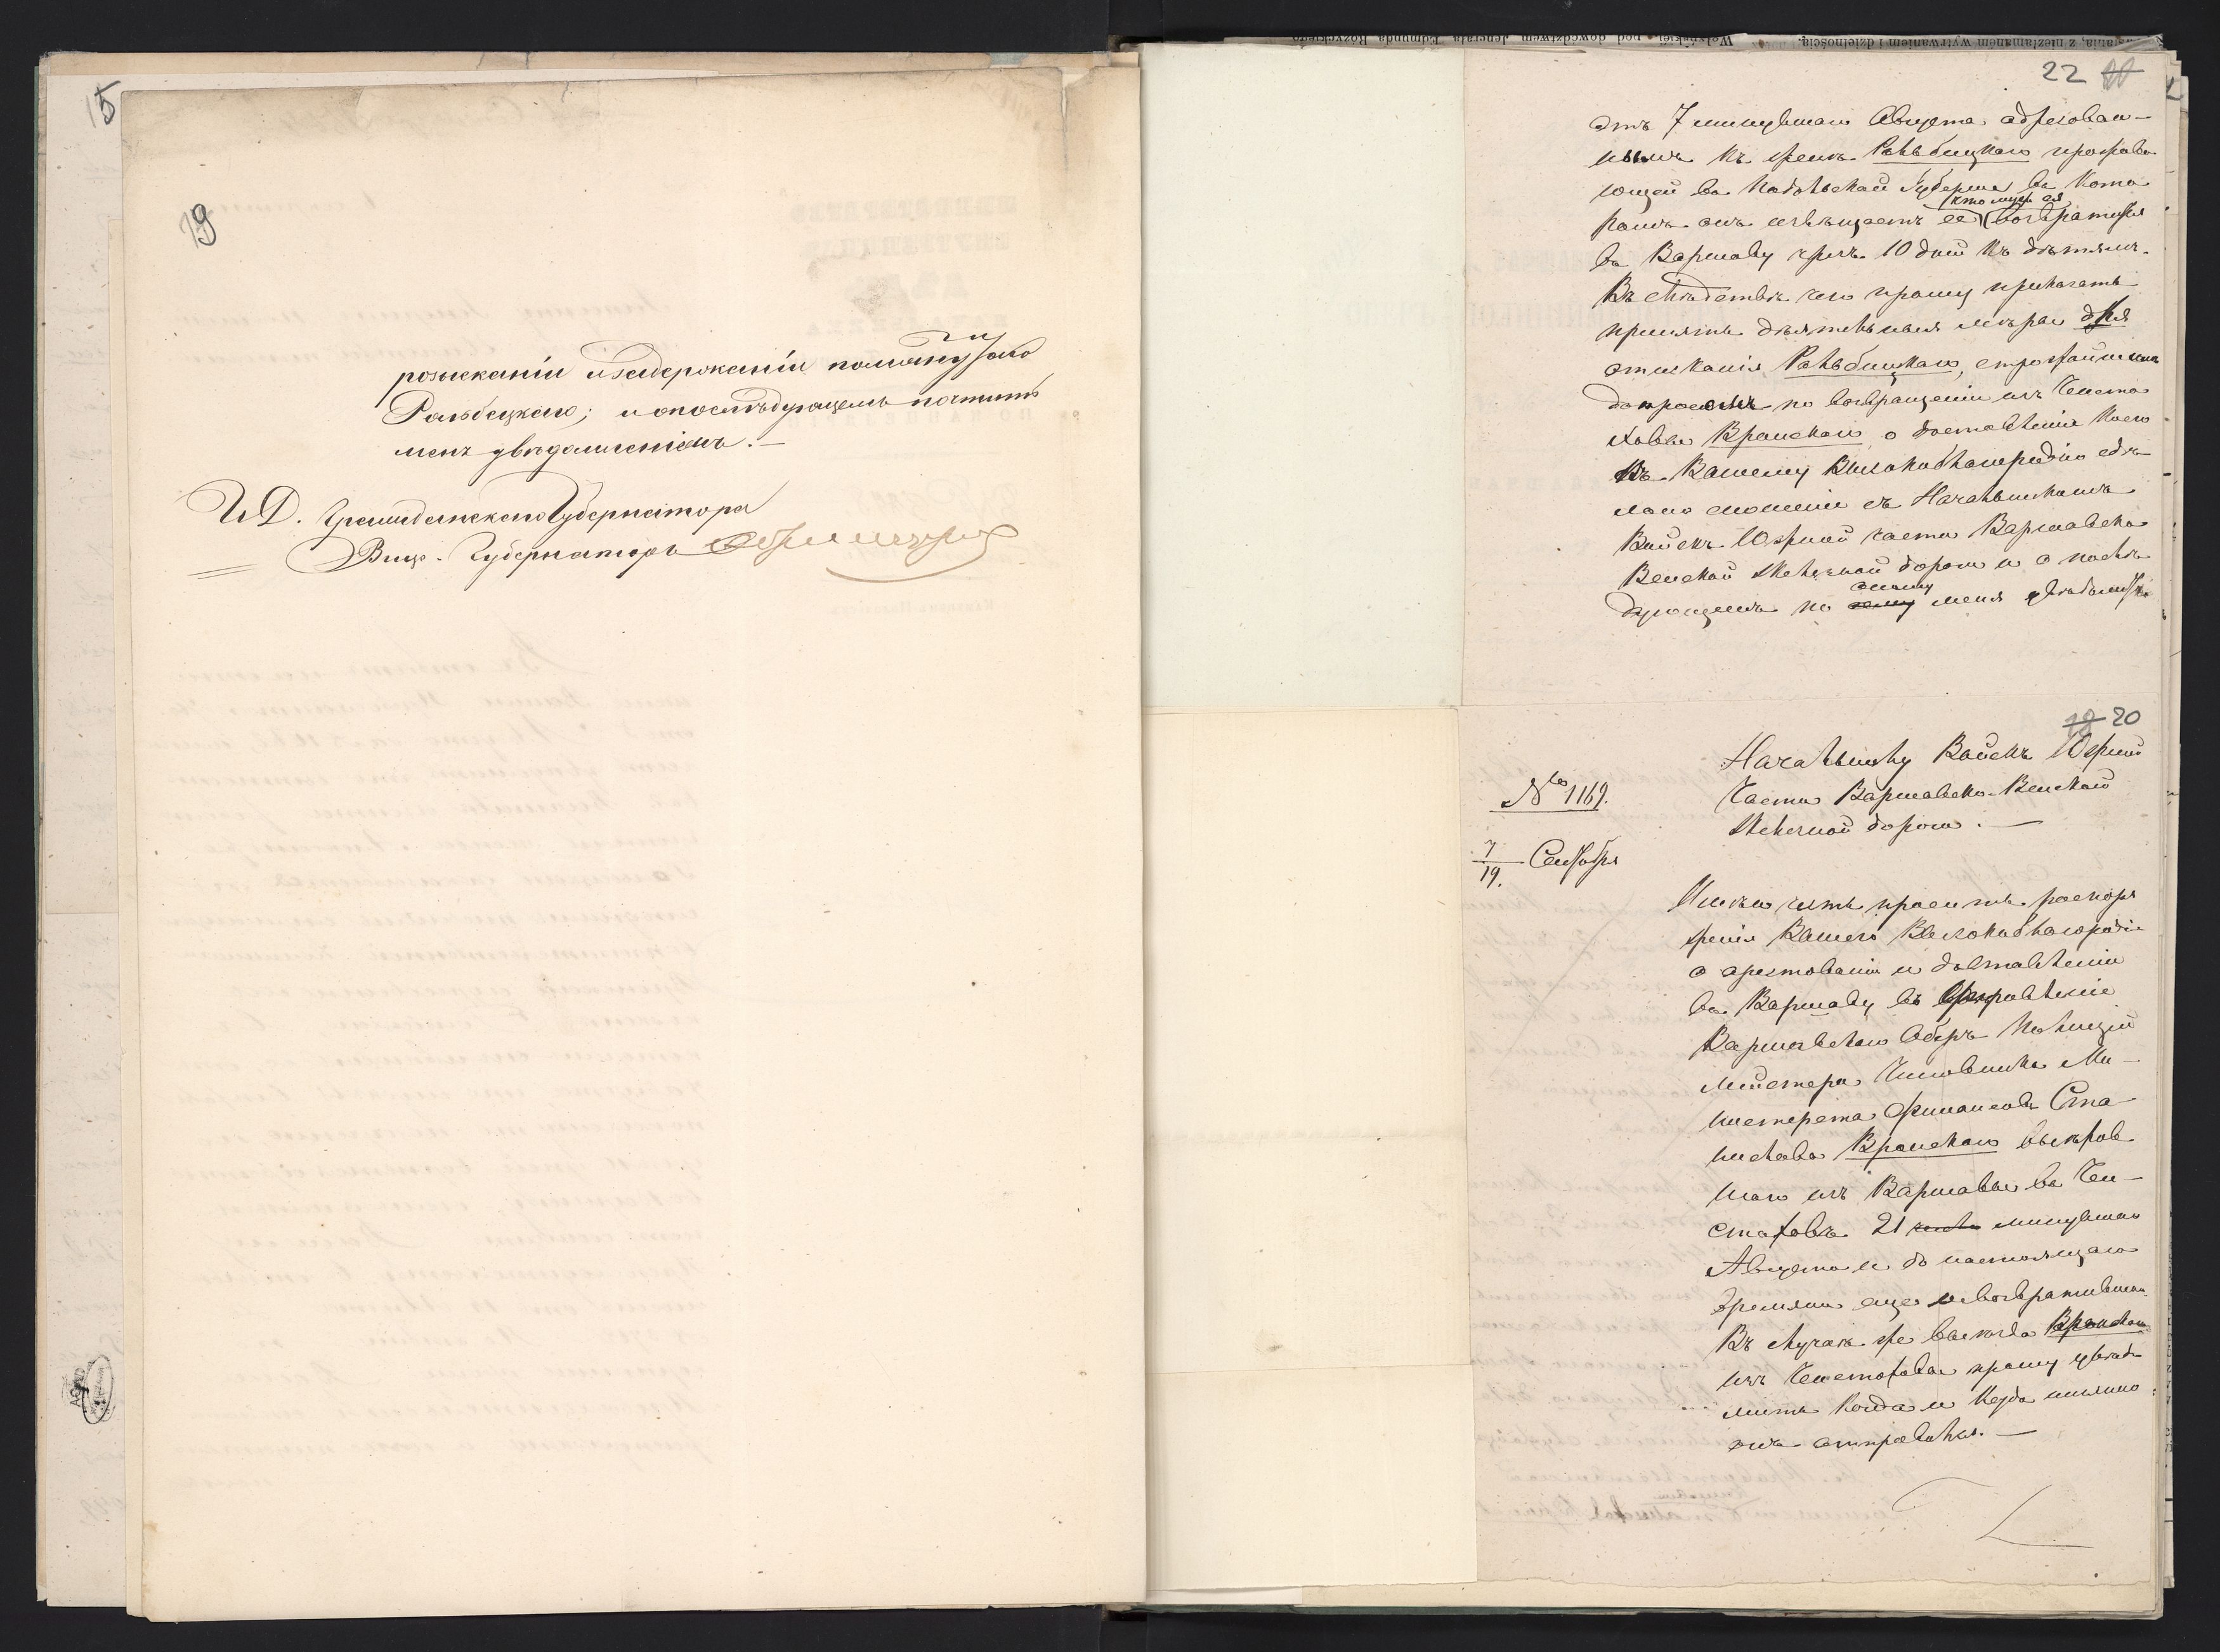 15
19
розысканіи и задержаніи помянутаго
Рольбецкаго; и о послѣдующемъ почтить
меня увѣдомленіемъ. —
И. Д. Гражданскаго Губернатора
Вице-Губернаторъ
22
отъ 7 минувшаго Августа адресован-
нымъ къ женѣ Рольбицкаго прожива
ющей въ Подольской Губерніи въ кото
ромъ онъ извѣщаетъ ее возвратится
что мужъ ея
въ Варшаву чрезъ 10 дней къ дѣтямъ.
Въ слѣдствіе чего прошу приказать
принять дѣятельныя мѣры для
отысканія Рольбицкаго, строжайшимъ
допросомъ по возвращеніи изъ Ченсто
хова Вронскаго о доставленіи коего
къ Вашему Высокоблагородію сдѣ
лано сношеніе съ Начальникомъ
Войскъ Южной части Варшавско
Венской желѣзной дороги и о послѣ
дующемъ по оному меня увѣдомить
18 20
Начальнику Войскъ Южной
Части Варшавско-Венской
желѣзной дороги. —
№ 1169.
7/19. Сентября
Имѣю честь просить распоря
женія Вашего Высокоблагородія
о арестованіи и доставленіи
въ Варшаву въ Управленіе
Варшавскаго Оберъ Полицій
мейстера Чиновника Ми-
нистерства Финансовъ Ста
нислава Вронскаго выѣхав
шаго изъ Варшавы въ Чен-
стоховъ 21 числа минувшаго
Августа и до настоящаго
времяни еще невозвратившаго.
Въ случаѣ же выѣзда Вронскаго
изъ Ченстохова прошу увѣдо
мить когда и куда имянно
онъ отправился. —